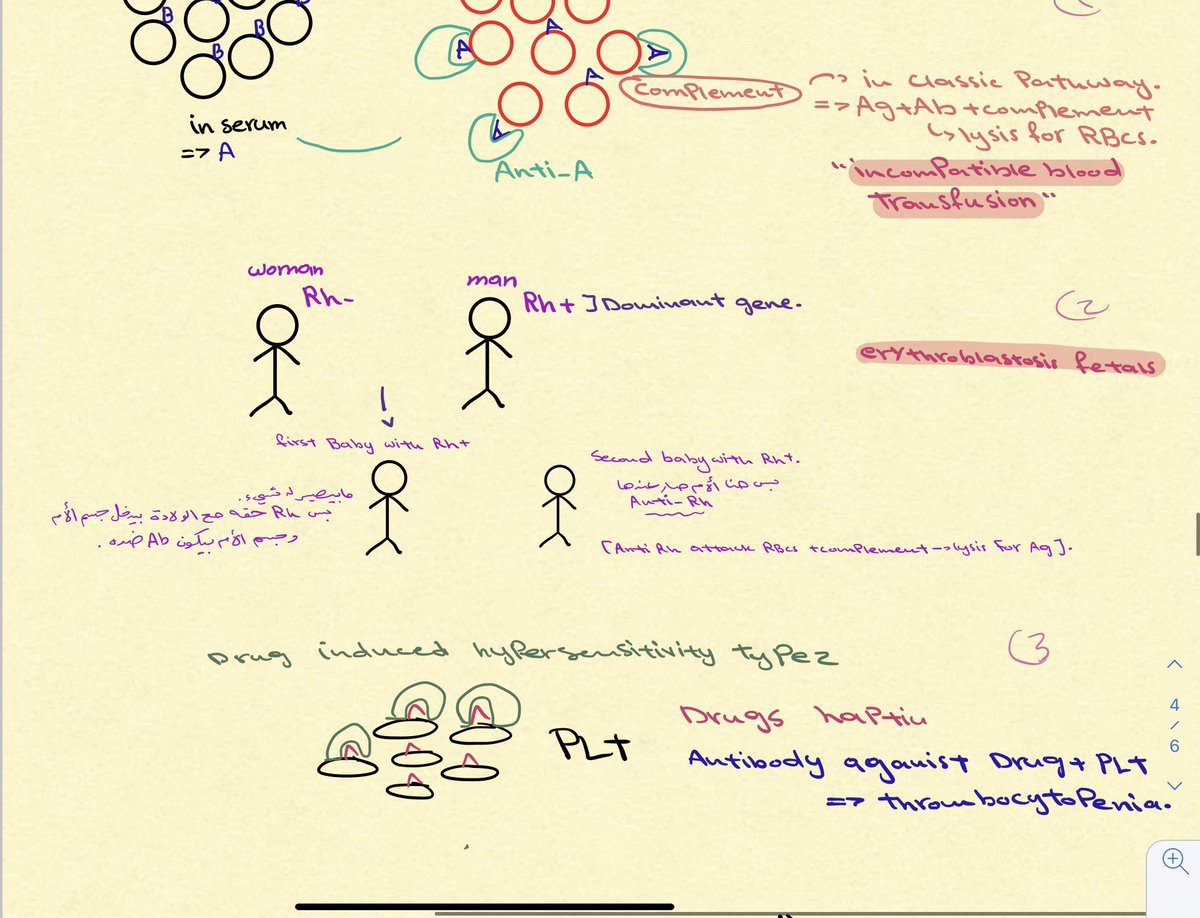 B
B
B
A
A
A
A
A
in serum
=> A
Anti-A
Complement
in classic Pathway.
=> Ag+Ab+complement
lysis for RBCs.
"incompatible blood
transfusion"
woman
Rh-
man
Rh+ ] Dominant gene.
(2
erythroblastosis fetals
first Baby with Rh+
مابيصير له شيء.
بس Rh حقه مع الولادة بيدخل جسم الأم
وجسم الأم بيكون Ab ضده.
Second baby with Rh+.
بس هنا الأم صار عندها
Anti-Rh
[Anti Rh attack RBCs +complement --> lysis for Ag].
Drug induced hypersensitivity type 2
(3
PLT
Drugs haptin
Antibody aganist Drug + PLT
=> thrombocytopenia.
4
/
6